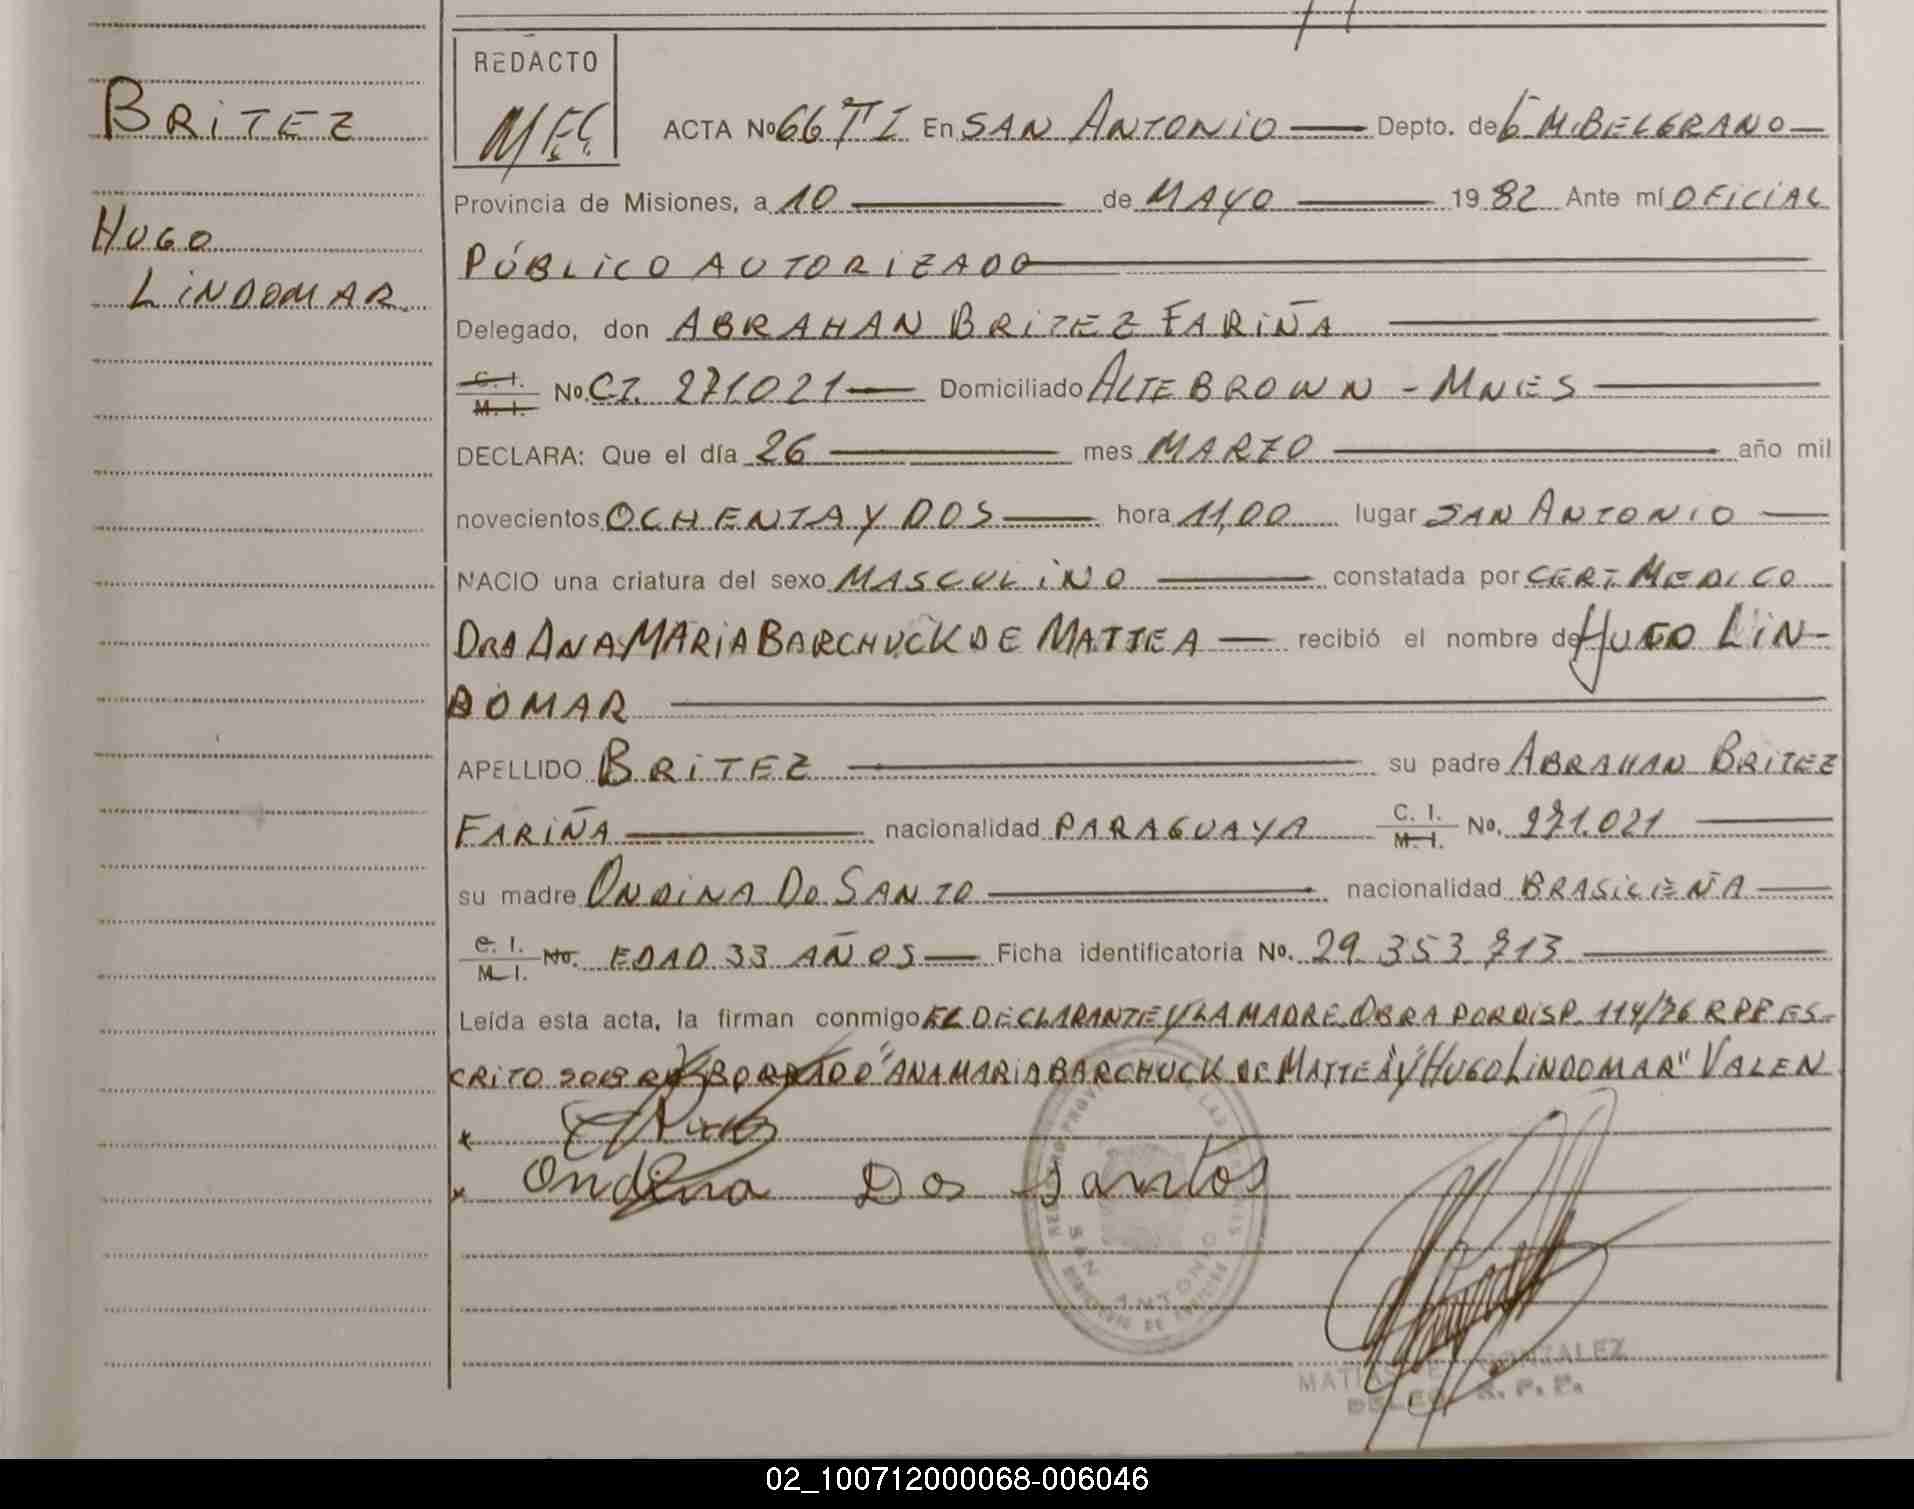 BRITEZ
HUGO
LINDOMAR
REDACTO
ACTA No 66 TI En SAN ANTONIO Depto. de G M. BELGRANO
Provincia de Misiones, a 10 de MAYO 1982 Ante mí OFICIAL
PÚBLICO AUTORIZADO
Delegado, don ABRAHAN BRITEZ FARIÑA
C. I. M. I. No. CI. 271021 Domiciliado ALTE BROWN - MNES
DECLARA: Que el día 26 mes MARZO año mil
novecientos OCHENTA Y DOS hora 11,00 lugar SAN ANTONIO
NACIO una criatura del sexo MASCULINO constatada por CERT. MEDICO
DRA ANA MARIA BARCHUCK DE MATTEA recibió el nombre de HUGO LIN-
DOMAR
APELLIDO BRITEZ su padre ABRAHAN BRITEZ
FARIÑA nacionalidad PARAGUAYA C. I. M. I. No. 271.021
su madre ONDINA DO SANTO nacionalidad BRASILEÑA
C. I. M. I. No. EDAD 33 AÑOS Ficha identificatoria No. 29.353.713
Leída esta acta, la firman conmigo EL DECLARANTE Y LA MADRE. OBRA POR DISP. 114/76 RPP ES-
CRITO SOBRE BORRADO "ANA MARIA BARCHUCK DE MATTEA" Y "HUGO LINDOMAR" VALEN
Ondina Dos Santos
SAN ANTONIO
MATIAS GONZALEZ
02_100712000068-006046